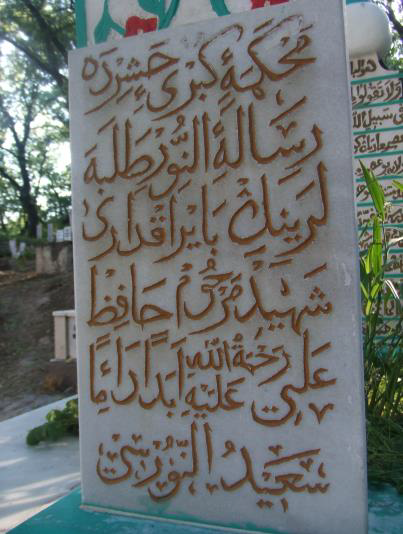 مَحْكَمَۀِ كُبْرٰى حَشِرْدَه
رِسَالَۀِ النُّورْ طَلَبَه
لَرِينِڭ بَايْرَاقْدَارِى
شَهِيدْ مَرْحُومْ حَافِظْ
عَلِى رَحْمَةُ اللّٰهِ عَلَيْهِ اَبَدًا دَائِمًا
سَعِيدُ النُّورْسِى
ولا تقولوا
سبيل الله